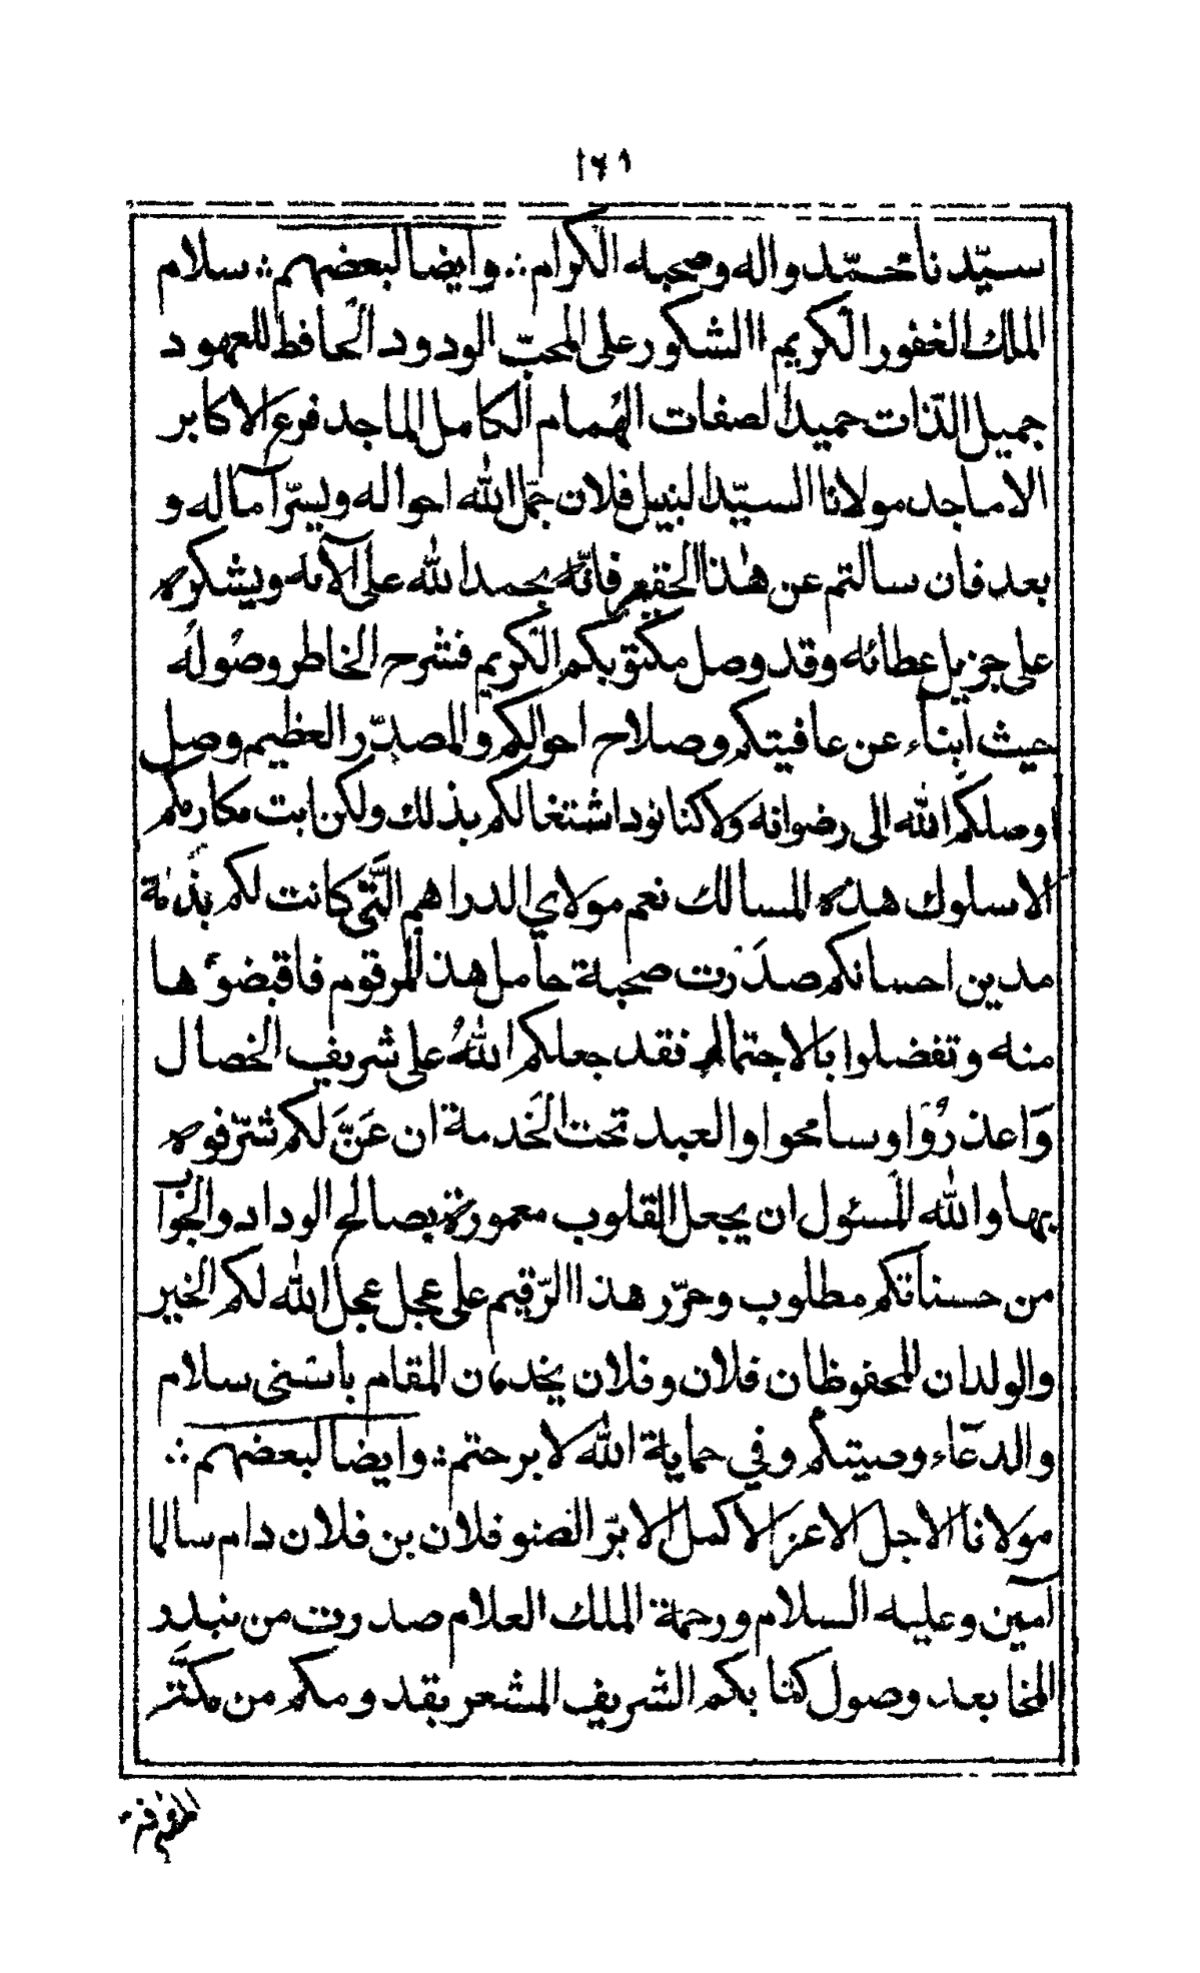 ١٦٩
سيّدنا محمّد واله وصحبه الكرام ؞ وايضا لبعضهم ؞ سلام
الملك الغفور الكريم الشكور على المحبّ الودود الحافظ للعهود
جميل الذّات حميد الصفات الهُمام الكامل الماجد فرع الاكابر
الاماجد مولانا السيّد النبيل فلان جمّل الله احواله ويسّر آماله و
بعد فان سالتم عن هذا الحقير فانّه بحمد الله على آلائه ويشكره
على جزيل عطائه وقد وصل مكتوبكم الكريم فشرح الخاطر وصُولُه
حيث أبناء عن عافيتكم وصلاح احوالكم والمصدّر العظيم وصل
وصلكم الله الى رضوانه ولا كنا نود اشتغالكم بذلك ولكن ابت مكارمكم
الا سلوك هذه المسالك نعم مولاي الدراهم الَّتي كانت لكم بذمّة
مدين احسانكم صَدَرت صحبة حامل هذا المرقوم فاقبضوُها
منه وتفضلوا بالاجتمال فقد جعلكم اللهُ على شريف الخصال
وَاعذرُوا وسامحوا والعبد تحت الخَدمة ان عَنَّ لكم شرّفوه
بها والله المَسئول ان يجعل القلوب معمورة بصالح الوداد والجواب
من حسناتكم مطلوب وحرّر هذا الرّقيم على عجل عجل الله لكم الخير
والولدان المحفوظان فلان وفلان يخدمان المقام باسنى سلام
والدعاء وصيتكم وفي حماية الله لا برحتم ؞ وايضا لبعضهم ؞
مولانا الاجل الاعز الاكمل الابرّ الصنو فلان بن فلان دام سالما
آمين وعليه السلام ورحمة الملك العلام صدرت من بندر
المخا بعد وصول كتابكم الشريف المشعر بقدومكم من مكَّة